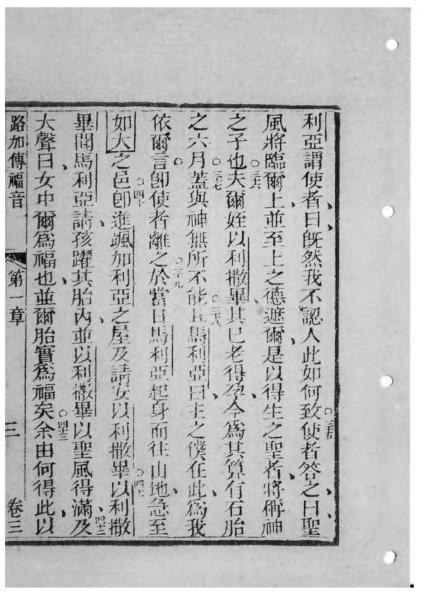 利亞謂使者曰旣然我不認人此如何致使者答之曰聖
三五
風將臨爾上並至上之德遮爾是以得生之聖者將稱神
之子也夫爾姪以利撒畢其已老得孕今爲其算有石胎
三六
之六月蓋與神無所不能且馬利亞曰主之僕在此爲我
三七 三八
依爾言卽使者離之於當日馬利亞起身而往山地急至
三九
如大之邑卽進颯加利亞之屋及請安以利撒畢以利撒
四十 四一
畢聞馬利亞請孩躍其胎內並以利撒畢以聖風得滿及
四二
大聲曰女中爾爲福也並爾胎實爲福矣余由何得此以
四三
路加傳福音 第一章 三 卷三